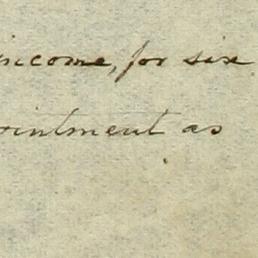 income, for six
ointment as